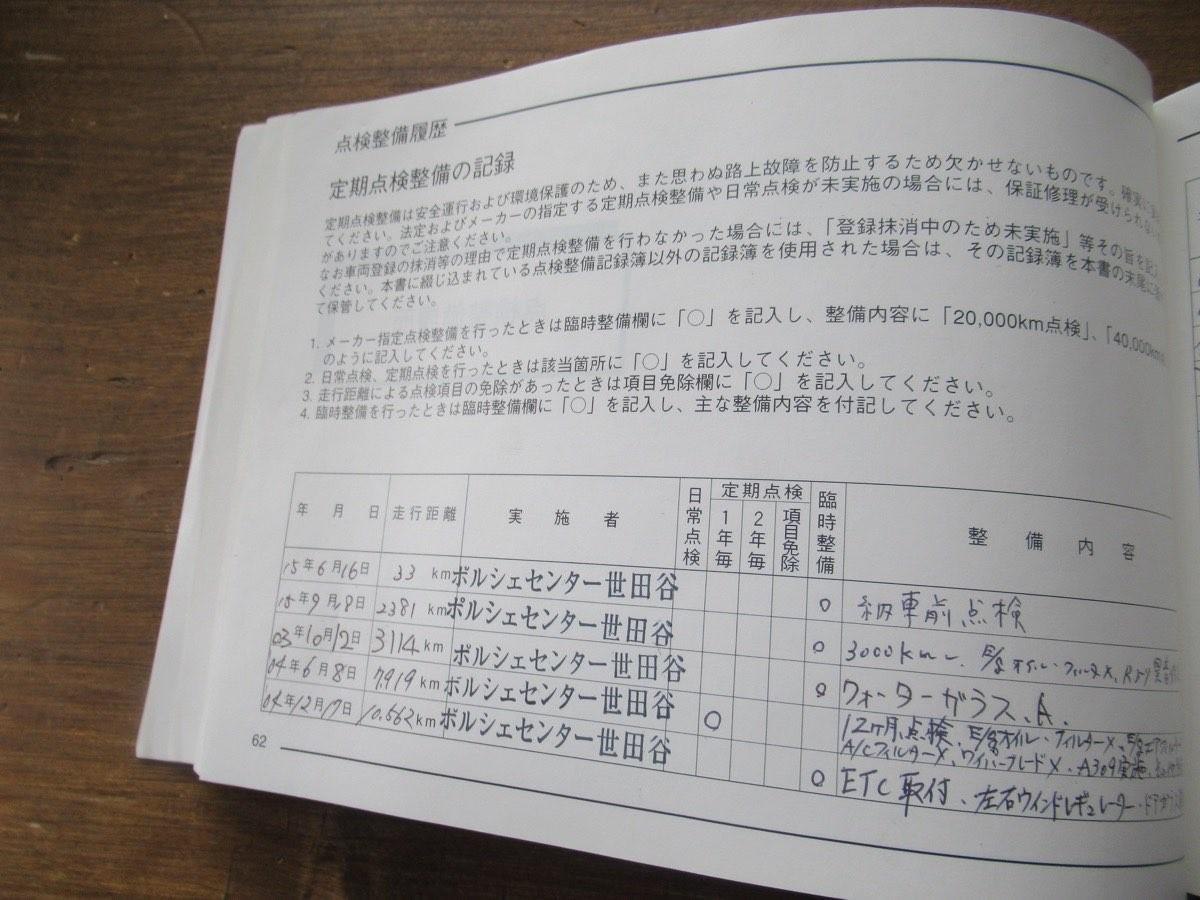 点検整備履歴
定期点検整備の記録
定期点検整備は安全運行および環境保護のため、また思わぬ路上故障を防止するため欠かせないものです。確実に
てください。法定およびメーカーの指定する定期点検整備や日常点検が未実施の場合には、保証修理が受けられない
がありますのでご注意ください。
なお車両登録の抹消等の理由で定期点検整備を行わなかった場合には、「登録抹消中のため未実施」等その旨を記
ください。本書に綴じ込まれている点検整備記録簿以外の記録簿を使用された場合は、その記録簿を本書の末尾に
て保管してください。
1. メーカー指定点検整備を行ったときは臨時整備欄に「○」を記入し、整備内容に「20,000km点検」、「40,000km
のように記入してください。
2. 日常点検、定期点検を行ったときは該当箇所に「○」を記入してください。
3. 走行距離による点検項目の免除があったときは項目免除欄に「○」を記入してください。
4. 臨時整備を行ったときは臨時整備欄に「○」を記入し、主な整備内容を付記してください。
年 月 日 走行距離 実施者 日常点検 定期点検 1年毎 2年毎 項目免除 臨時整備 整備内容
15年6月16日 33 km ポルシェセンター世田谷 ○ 納車前点検
15年9月8日 2381 km ポルシェセンター世田谷 ○ 3000km
03年10月12日 3114 km ポルシェセンター世田谷 ○ ウォーターガラス、A.
04年6月8日 7,919 km ポルシェセンター世田谷 ○ 12ヶ月点検、E/gオイル・フィルターX、
A/CフィルターX、ワイパーブレードX・A309実施、
04年12月17日 10,562km ポルシェセンター世田谷 ○ ETC取付、左右ウインドレギュレーター・ドア
62